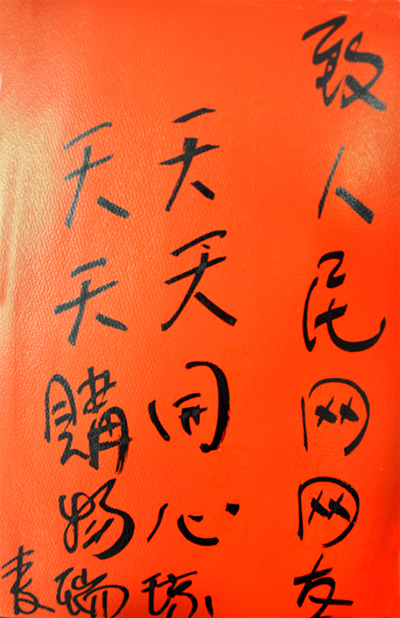 致人民网网友
天天開心
天天購物瑞